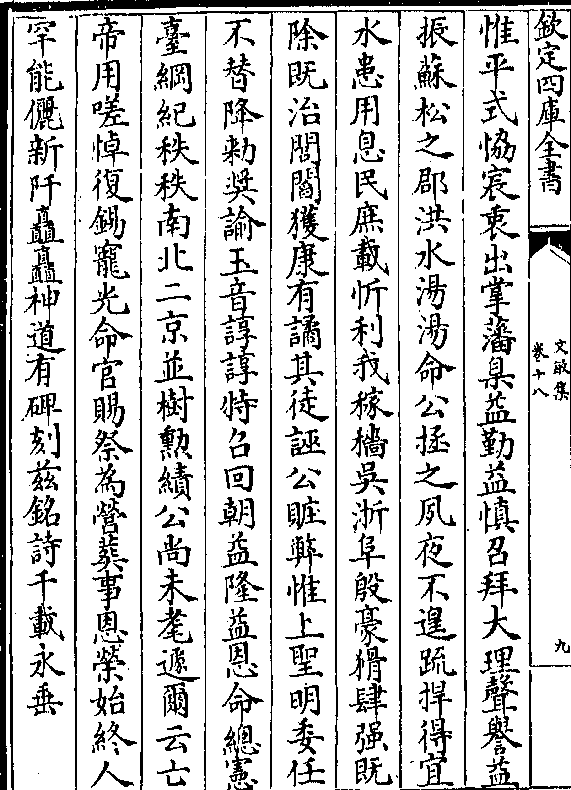 欽定四庫全書
文敏集
卷十八
九
惟平式恊宸衷出掌藩臬益勤益慎召拜大理聲譽益
振蘇松之郡洪水湯湯命公拯之夙夜不遑疏捍得宜
水患用息民庶載忻利我稼穡吳浙阜殷豪猾肆强既
除既治閭閻獲康有譎其徒誣公賍辜惟上聖明委任
不替降勑奬諭玉音諄諄特召回朝益隆益恩命總憲
臺綱紀秩秩南北二京並樹勲績公尚未耄遽爾云亡
帝用嗟悼復錫寵光命官賜祭為營葬事恩榮始終人
罕能儷新阡矗矗神道有碑刻兹銘詩千載永垂